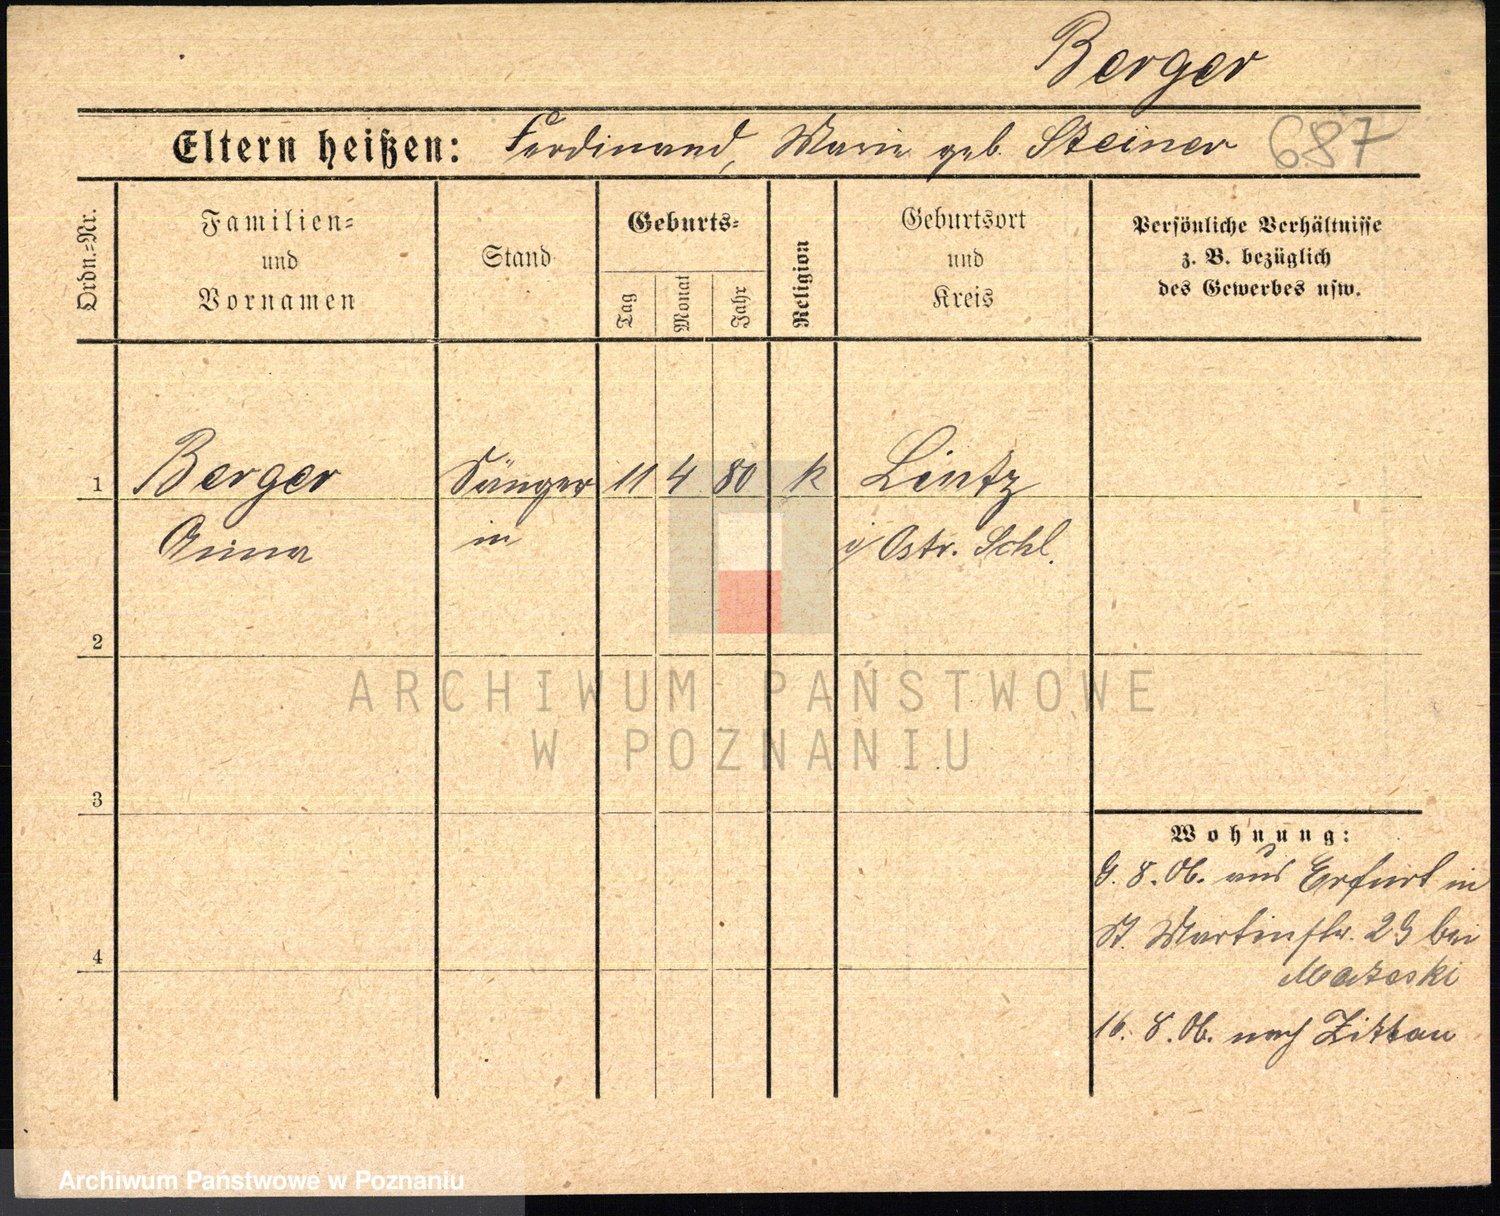 Berger
Eltern heißen: Ferdinand, Marie geb. Steiner 687
Ordn.=Nr.
Familien=
und
Vornamen
Stand
Geburts=
Tag
Monat
Jahr
Religion
Geburtsort
und
Kreis
Persönliche Verhältnisse
z. B. bezüglich
des Gewerbes usw.
1 Berger Sänger 11 4 80 k Lintz
Anna in i Östr. Schl.
2
3
4
Wohnung:
9. 8. 06. aus Erfurt in
St. Martinstr. 23 bei
16. 8. 06. nach Zittau
ARCHIWUM PAŃSTWOWE
W POZNANIU
Archiwum Państwowe w Poznaniu